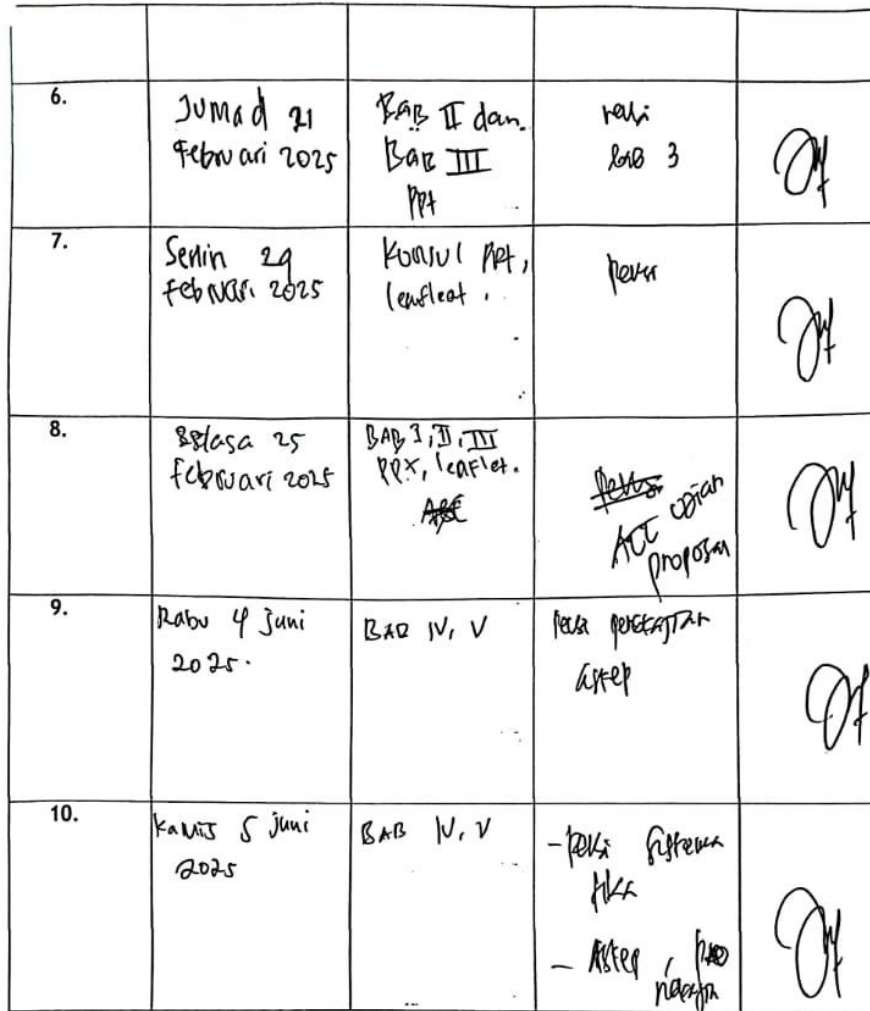 6.
Jumad 21
Februari 2025
BAB II dan
BAB III
PPt
bab 3
7.
Senin 24
Februari 2025
Konsul PPt,
leafleat.
8.
Selasa 25
Februari 2025
BAB I, II, III
PPt, leaflet.
ACC ujian
proposal
9.
Rabu 4 juni
2025.
BAB IV, V
askep
10.
Kamis 5 juni
2025
BAB IV, V
- sistema
tika
- Askep,